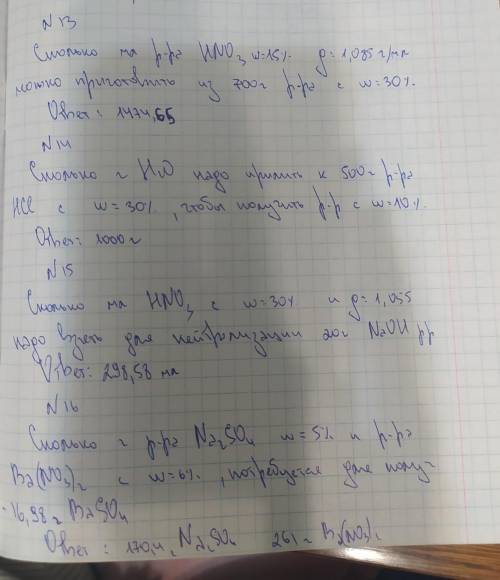 N 13
Сколько мл р-ра HNO3 w=15% g=1,085 г/мл
можно приготовить из 700г р-ра с w=30%.
Ответ: 1474,65
N14
Сколько г H2O надо прилить к 500г р-ра
HCl с w=30%, чтобы получить р-р с w=10%.
Ответ: 1000г
N15
Сколько мл HNO3 с w=30% и g=1,055
надо взять для нейтрализации 20г NaOH рр
Ответ: 298,58 мл
N16
Сколько г р-ра Na2SO4 w=5% и р-ра
Ba(NO3)2 с w=6%, потребуется для полу-
16,98г BaSO4
Ответ: 170,4г Na2SO4 261г Ba(NO3)2